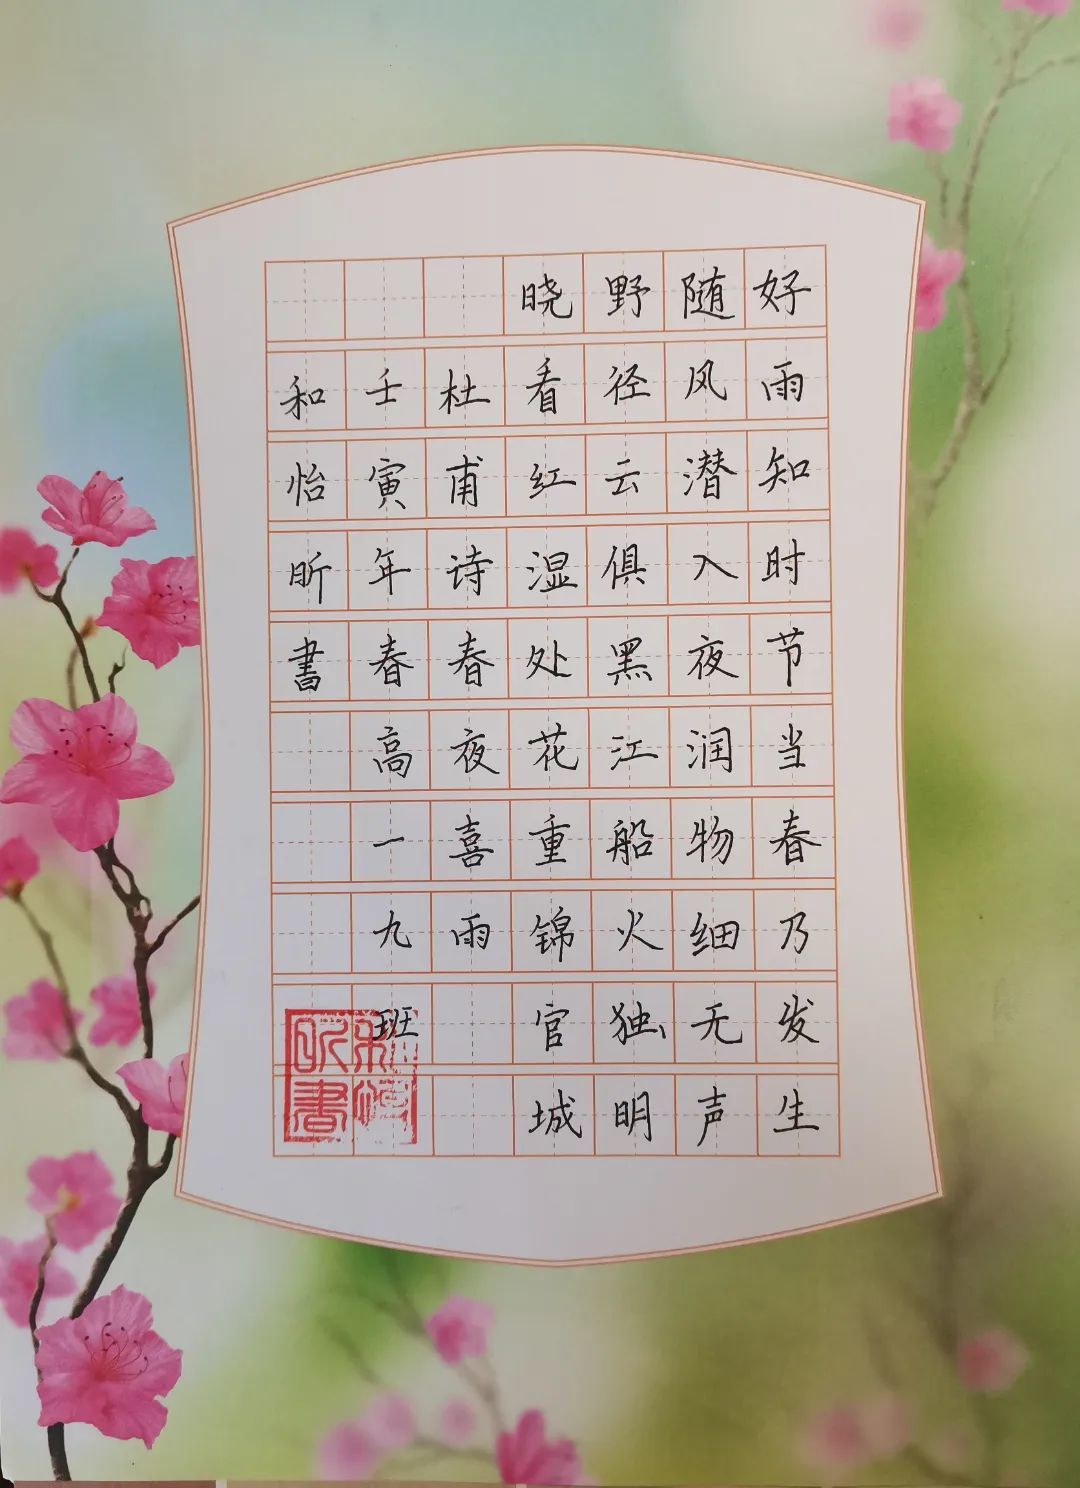 好雨知时节当春乃发生
随风潜入夜润物细无声
野径云俱黑江船火独明
晓看红湿处花重锦官城
杜甫诗春夜喜雨
壬寅年春高一九班
和怡昕書